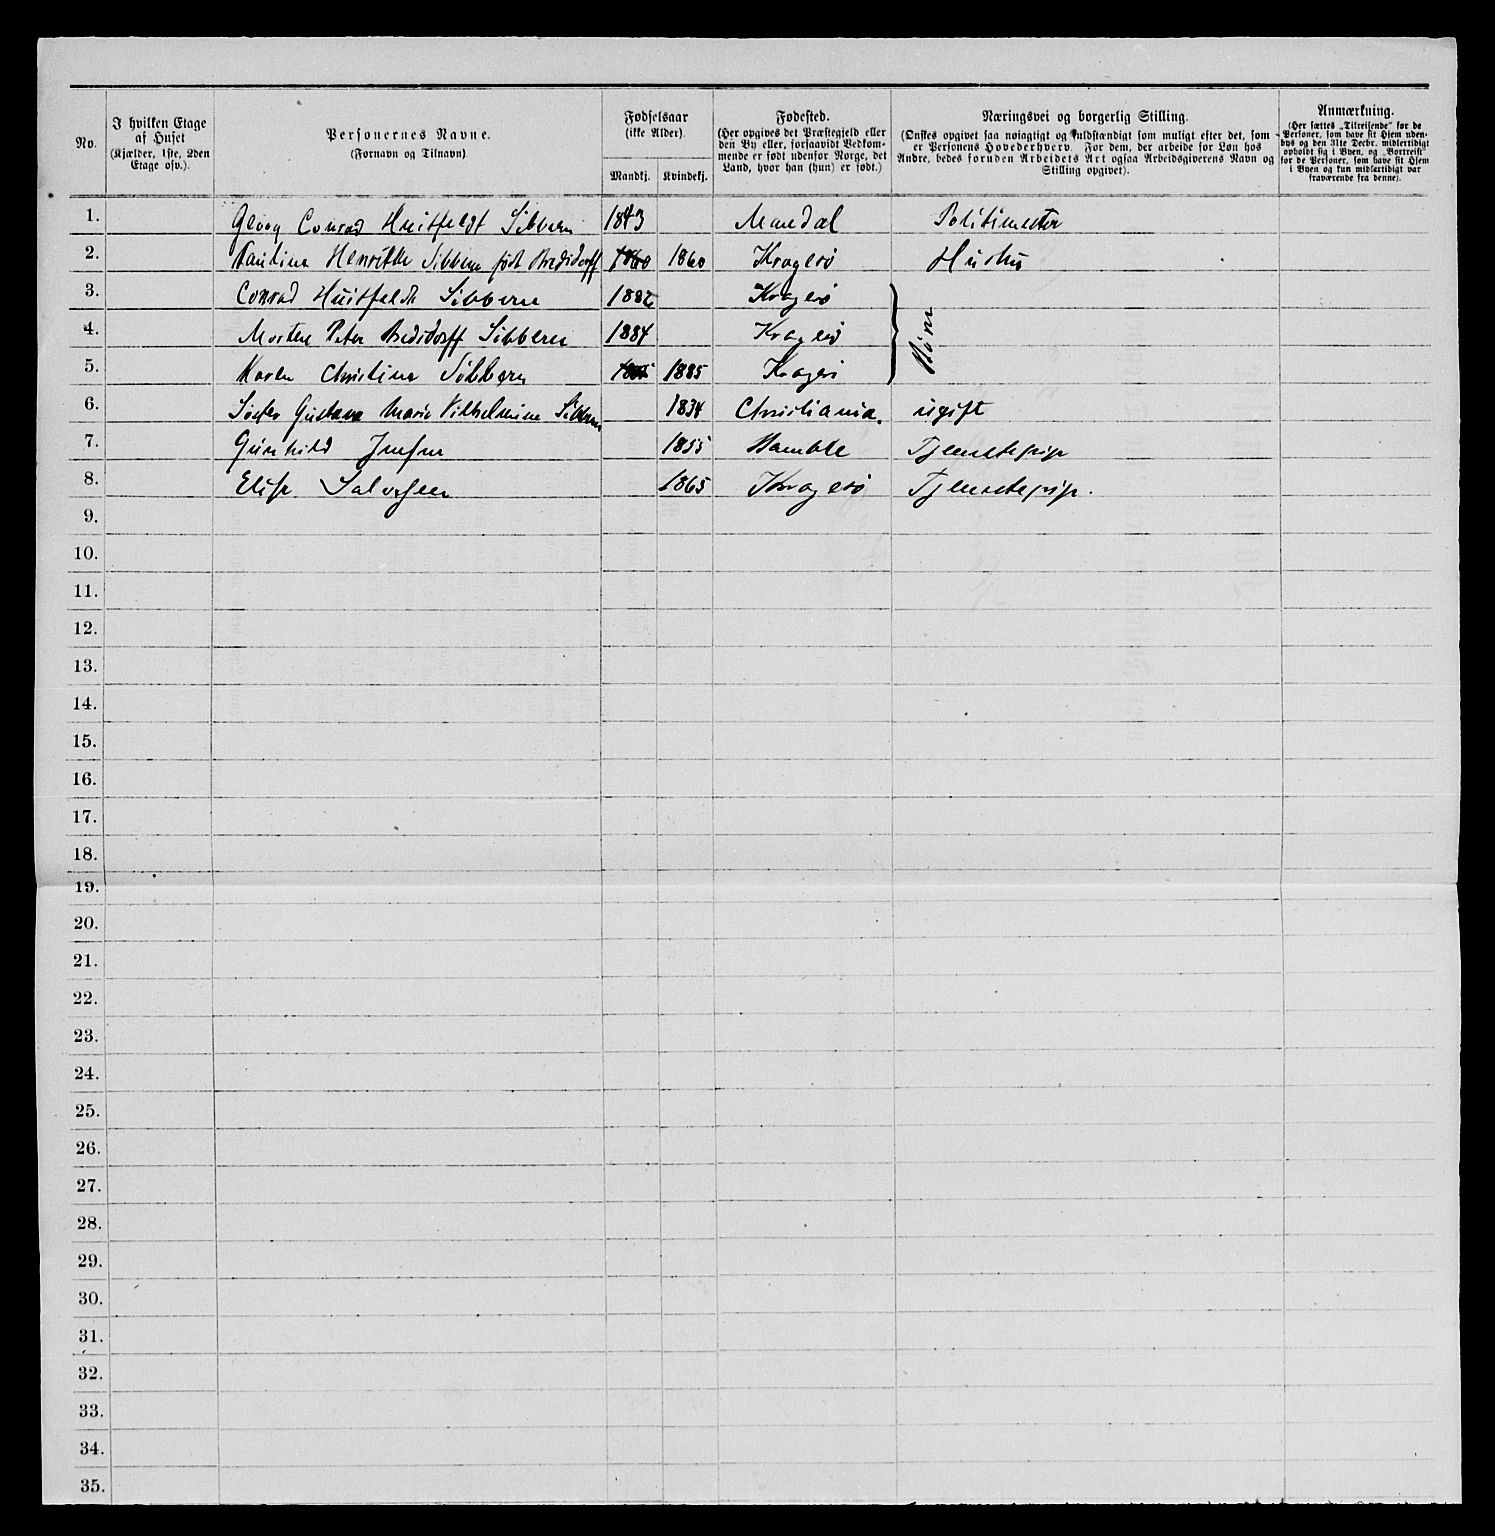 No. I hvilken Etage af Huset (Kjælder, 1ste, 2den Etage osv.). Personernes Navne. (Fornavn og Tilnavn) Fødselsaar (ikke Alder). Mandkj. Kvindekj. Fødested. (Her opgives det Præstegjeld eller den By eller, forsaavidt Vedkommende er født udenfor Norge, det Land, hvor han (hun) er født.) Næringsvei og borgerlig Stilling. (Ønskes opgivet saa nøiagtigt og fuldstændigt som muligt efter det, som er Personens Hovederhverv. For dem, der arbeide for Løn hos Andre, bedes foruden Arbeidets Art ogsaa Arbeidsgiverens Navn og Stilling opgivet). Anmærkning. (Her sættes „Tilreisende" for de Personer, som have sit Hjem udenbys og den 31te Decbr. midlertidigt opholdt sig i Byen, og „Bortreist" for de Personer, som have sit Hjem i Byen og kun midlertidigt var fraværende fra denne).
1. Georg Conrad Huitfeldt Sibbern 1843 Mandal Politimester
2. Paulina Henrikke Sibbern født Bredsdorff 1860 1860 Kragerø Hustru
3. Conrad Huitfeldt Sibbern 1882 Kragerø
4. Morten Peter Bredsdorff Sibbern 1884 Kragerø Børn
5. Karen Christina Sibbern 1885 1885 Kragerø
6. Søster Gustava Marie Vilhelmine Sibbern 1834 Christiania. ugift
7. Gunhild Jensen 1855 Bamble Tjenestepige
8. Elise Salvesen 1865 Kragerø Tjenestepige.
9.
10.
11.
12.
13.
14.
15.
16.
17.
18.
19.
20.
21.
22.
23.
24.
25.
26.
27.
28.
29.
30.
31.
32.
33.
34.
35.